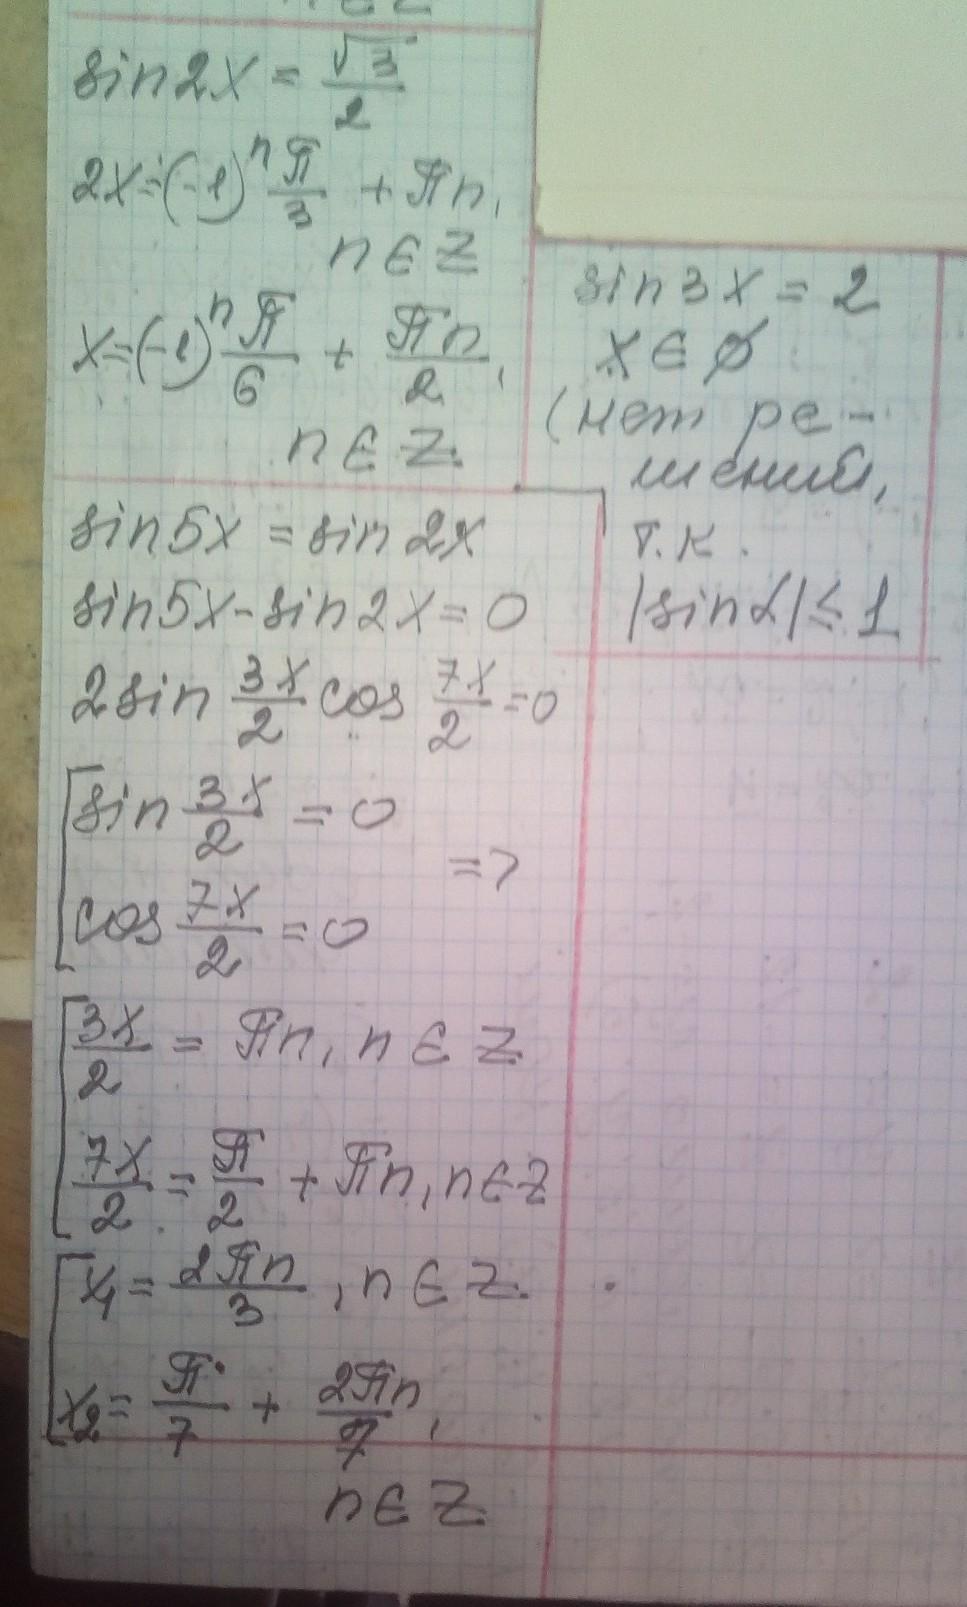 n ∈ Z
sin2x = √3/2
2x = (-1)^n π/3 + πn,
n ∈ Z
x = (-1)^n π/6 + πn/2,
n ∈ Z.
sin3x = 2
x ∈ ∅
(нет ре-
шений,
т.к.
|sinα| ≤ 1
sin5x = sin2x
sin5x - sin2x = 0
2sin 3x/2 cos 7x/2 = 0
[ sin 3x/2 = 0
=>
cos 7x/2 = 0
[ 3x/2 = πn, n ∈ Z
7x/2 = π/2 + πn, n ∈ Z
[ x₁ = 2πn/3, n ∈ Z.
x₂ = π/7 + 2πn/7,
n ∈ Z